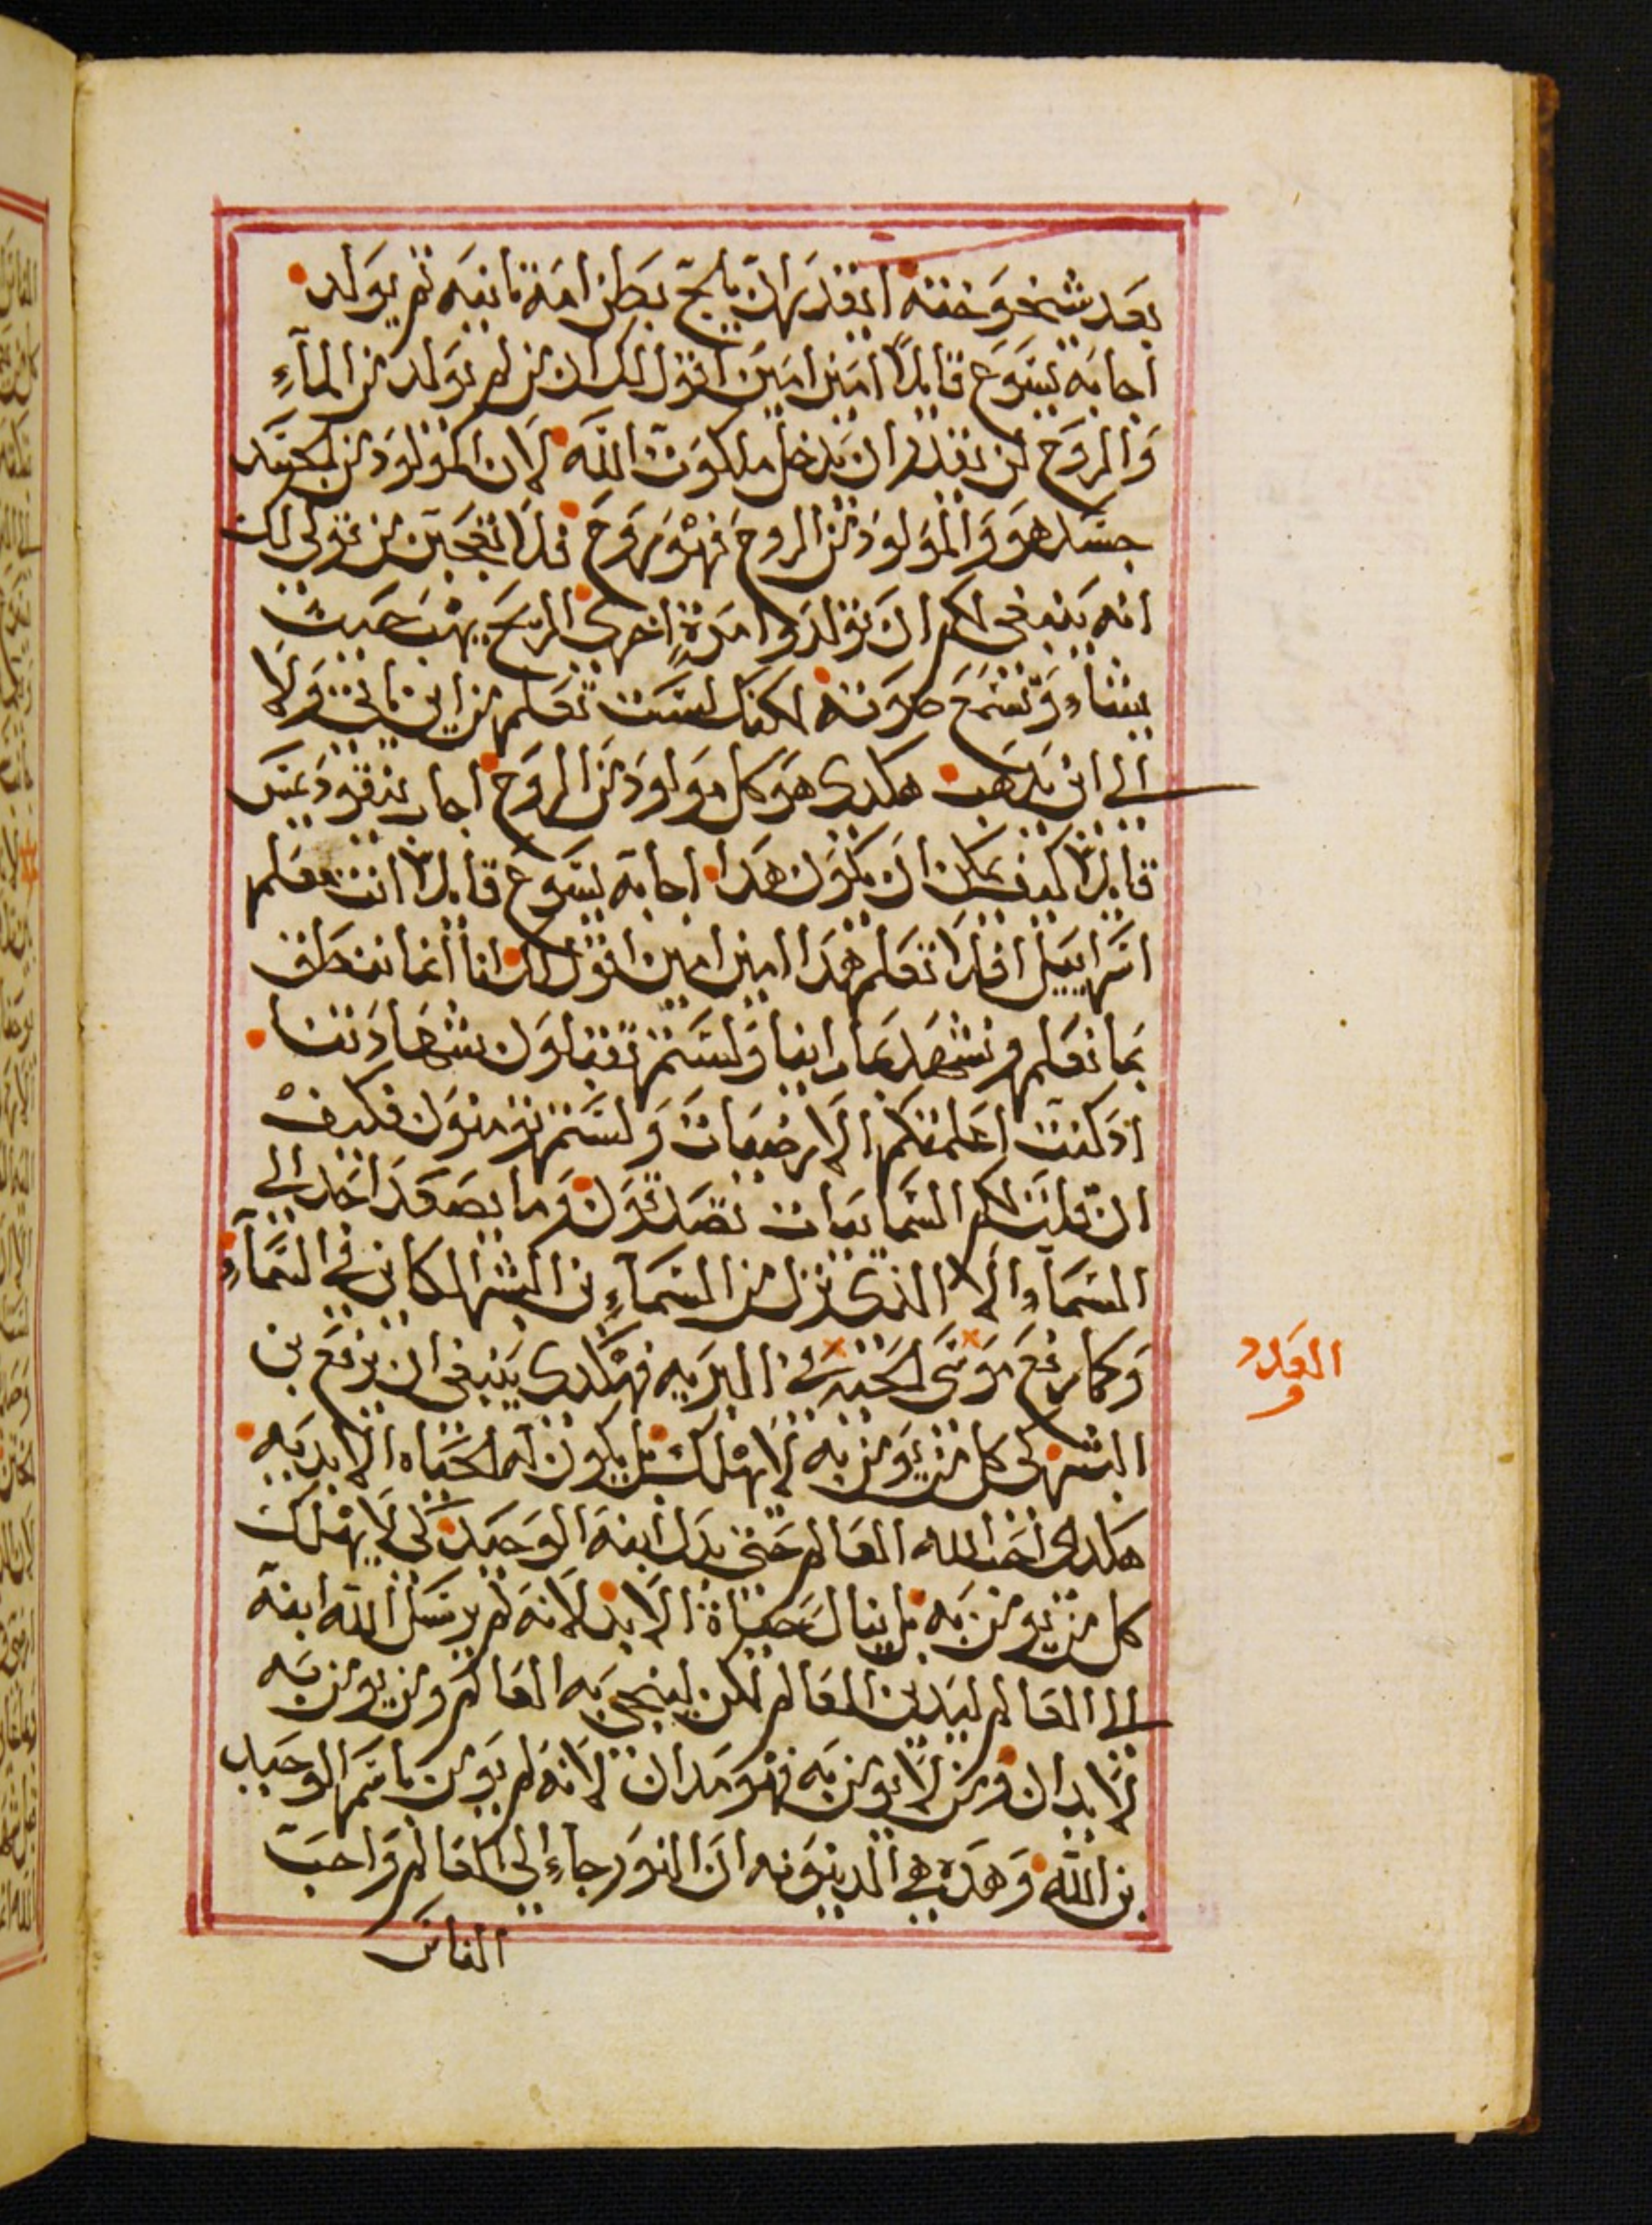 بعد شيخوخته ايقدر ان يلج بطن امه ثانيه ثم يولد
اجابه يسوع قايلاً امين امين اقول لك ان من لم يولد من المآء
والروح لن يقدر ان يدخل ملكوت الله لان المولود من الجسد
جسد هو والمولود من الروح فهو روح فلا تعجبن من قولي لك
انه ينبغي لكم ان تولدوا مرةٍ اخرى الريح يهب حيث
يشاء وتسمع صوته لكنك لست تعلم من اين ياتي ولا
الى اين يذهب هكدى هو كل مولود من الروح اجاب نيقوديمس
قايلاً كيف يمكن ان يكون هدا اجابه يسوع قايلاً انت معلم
اسراييل افلا تعلم هدا امين امين اقول لك اننا انما ننطق
بما نعلم ونشهد بما راينا ولستم تقبلون شهادتنا
اد كنت اعلمتكم الارضيات ولستم تومنون فكيف
ان قلت لكم السمايوات تصدقون وما يصعد احد الى
السمآء الا الذي نزل من السمآءِ بن البشر الكاين في السمآءِ
وكما رفع موسى الحيه في البريه فهكدى ينبغي ان يرفع بن
البشر لكي كل من يومن به لا يهلك بل يكون له الحياه الابديه
هكدى احب الله العالم حتى بدل ابنه الوحيد لكي لا يهلك
كل من يومن به بل ينال حياة الابد لانه لم يرسل الله ابنه
الى العالم ليدين العالم لكن لينجي به العالم ومن يومن به
لا يدان ومن لا يومن به فهو مدان لانه لم يومن باسم الوحيد
بن الله وهده هي الدينونه ان النور جاء الى العالم واحب
الناس
العدد